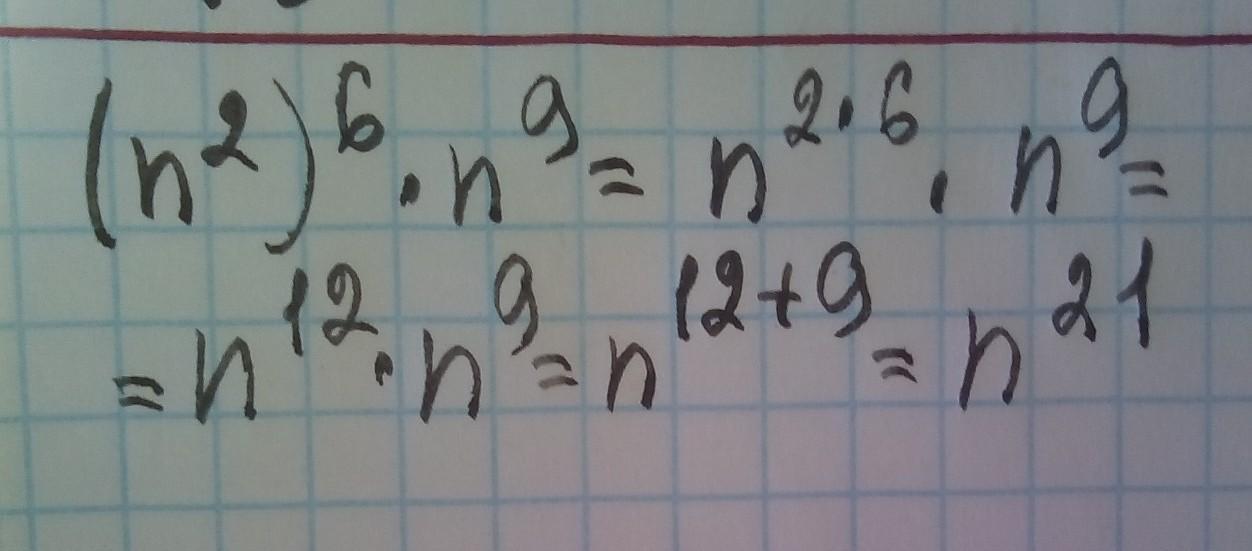 (n²)⁶ · n⁹ = n²·⁶ · n⁹ =
= n¹² · n⁹ = n¹²⁺⁹ = n²¹